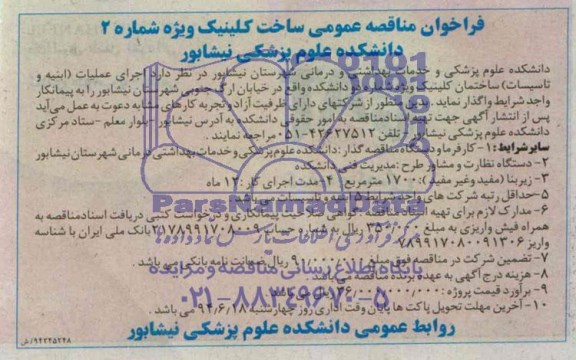 فراخوان مناقصه عمومی ساخت کلینیک ویژه شماره ۲
دانشکده علوم پزشکی نیشابور
دانشکده علوم پزشکی و خدمات بهداشتی و درمانی شهرستان نیشابور در نظر دارد اجرای عملیات (ابنیه و
تاسیسات) ساختمان کلینیک ویژه شماره دو دانشکده واقع در خیابان ارگ جنوبی شهرستان نیشابور را به پیمانکار
واجد شرایط واگذار نماید. بدین منظور از شرکتهای دارای ظرفیت آزاد و تجربه کارهای مشابه دعوت به عمل می آید
پس از انتشار آگهی جهت تهیه اسناد مناقصه به امور حقوقی دانشکده به آدرس نیشابور - بلوار معلم - ستاد مرکزی
دانشکده علوم پزشکی نیشابور - تلفن ۴۲۶۲۷۵۱۲-۰۵۱ مراجعه نمایند.
سایر شرایط: ۱- کارفرما و دستگاه مناقصه گذار: دانشکده علوم پزشکی و خدمات بهداشتی درمانی شهرستان نیشابور
۲- دستگاه نظارت و مشاور طرح: مدیریت فنی دانشکده
۳- زیربنا (مفید و غیر مفید): ۱۷۰۰ مترمربع ۴- مدت اجرای کار: ۱۲ ماه
۵- حداقل رتبه شرکت های واجد شرایط: ۵ ابنیه و تاسیسات می باشد
۶- مدارک لازم برای تهیه اسناد مناقصه: گواهی صلاحیت پیمانکاری و درخواست کتبی دریافت اسناد مناقصه به
همراه فیش واریزی به مبلغ ۳۵۰/۰۰۰ ریال به شماره حساب بانک ملی ایران با شناسه
واریز
۷- تضمین شرکت در مناقصه فوق مبلغ ریال ضمانت نامه بانکی می باشد.
۸- هزینه درج آگهی به عهده برنده مناقصه می باشد.
۹- برآورد قیمت پروژه: ریال می باشد
۱۰- آخرین مهلت تحویل پاکت ها پایان وقت اداری روز چهارشنبه ۹۴/۶/۱۸ می باشد.
روابط عمومی دانشکده علوم پزشکی نیشابور
۹۴۲۳۵۲۴۸/ش
ParsNamadData
گردآوری اطلاعات پارس نماد داده ها
پایگاه اطلاع رسانی مناقصه و مزایده
۰۲۱-۸۸۳۴۹۶۷۰-۵